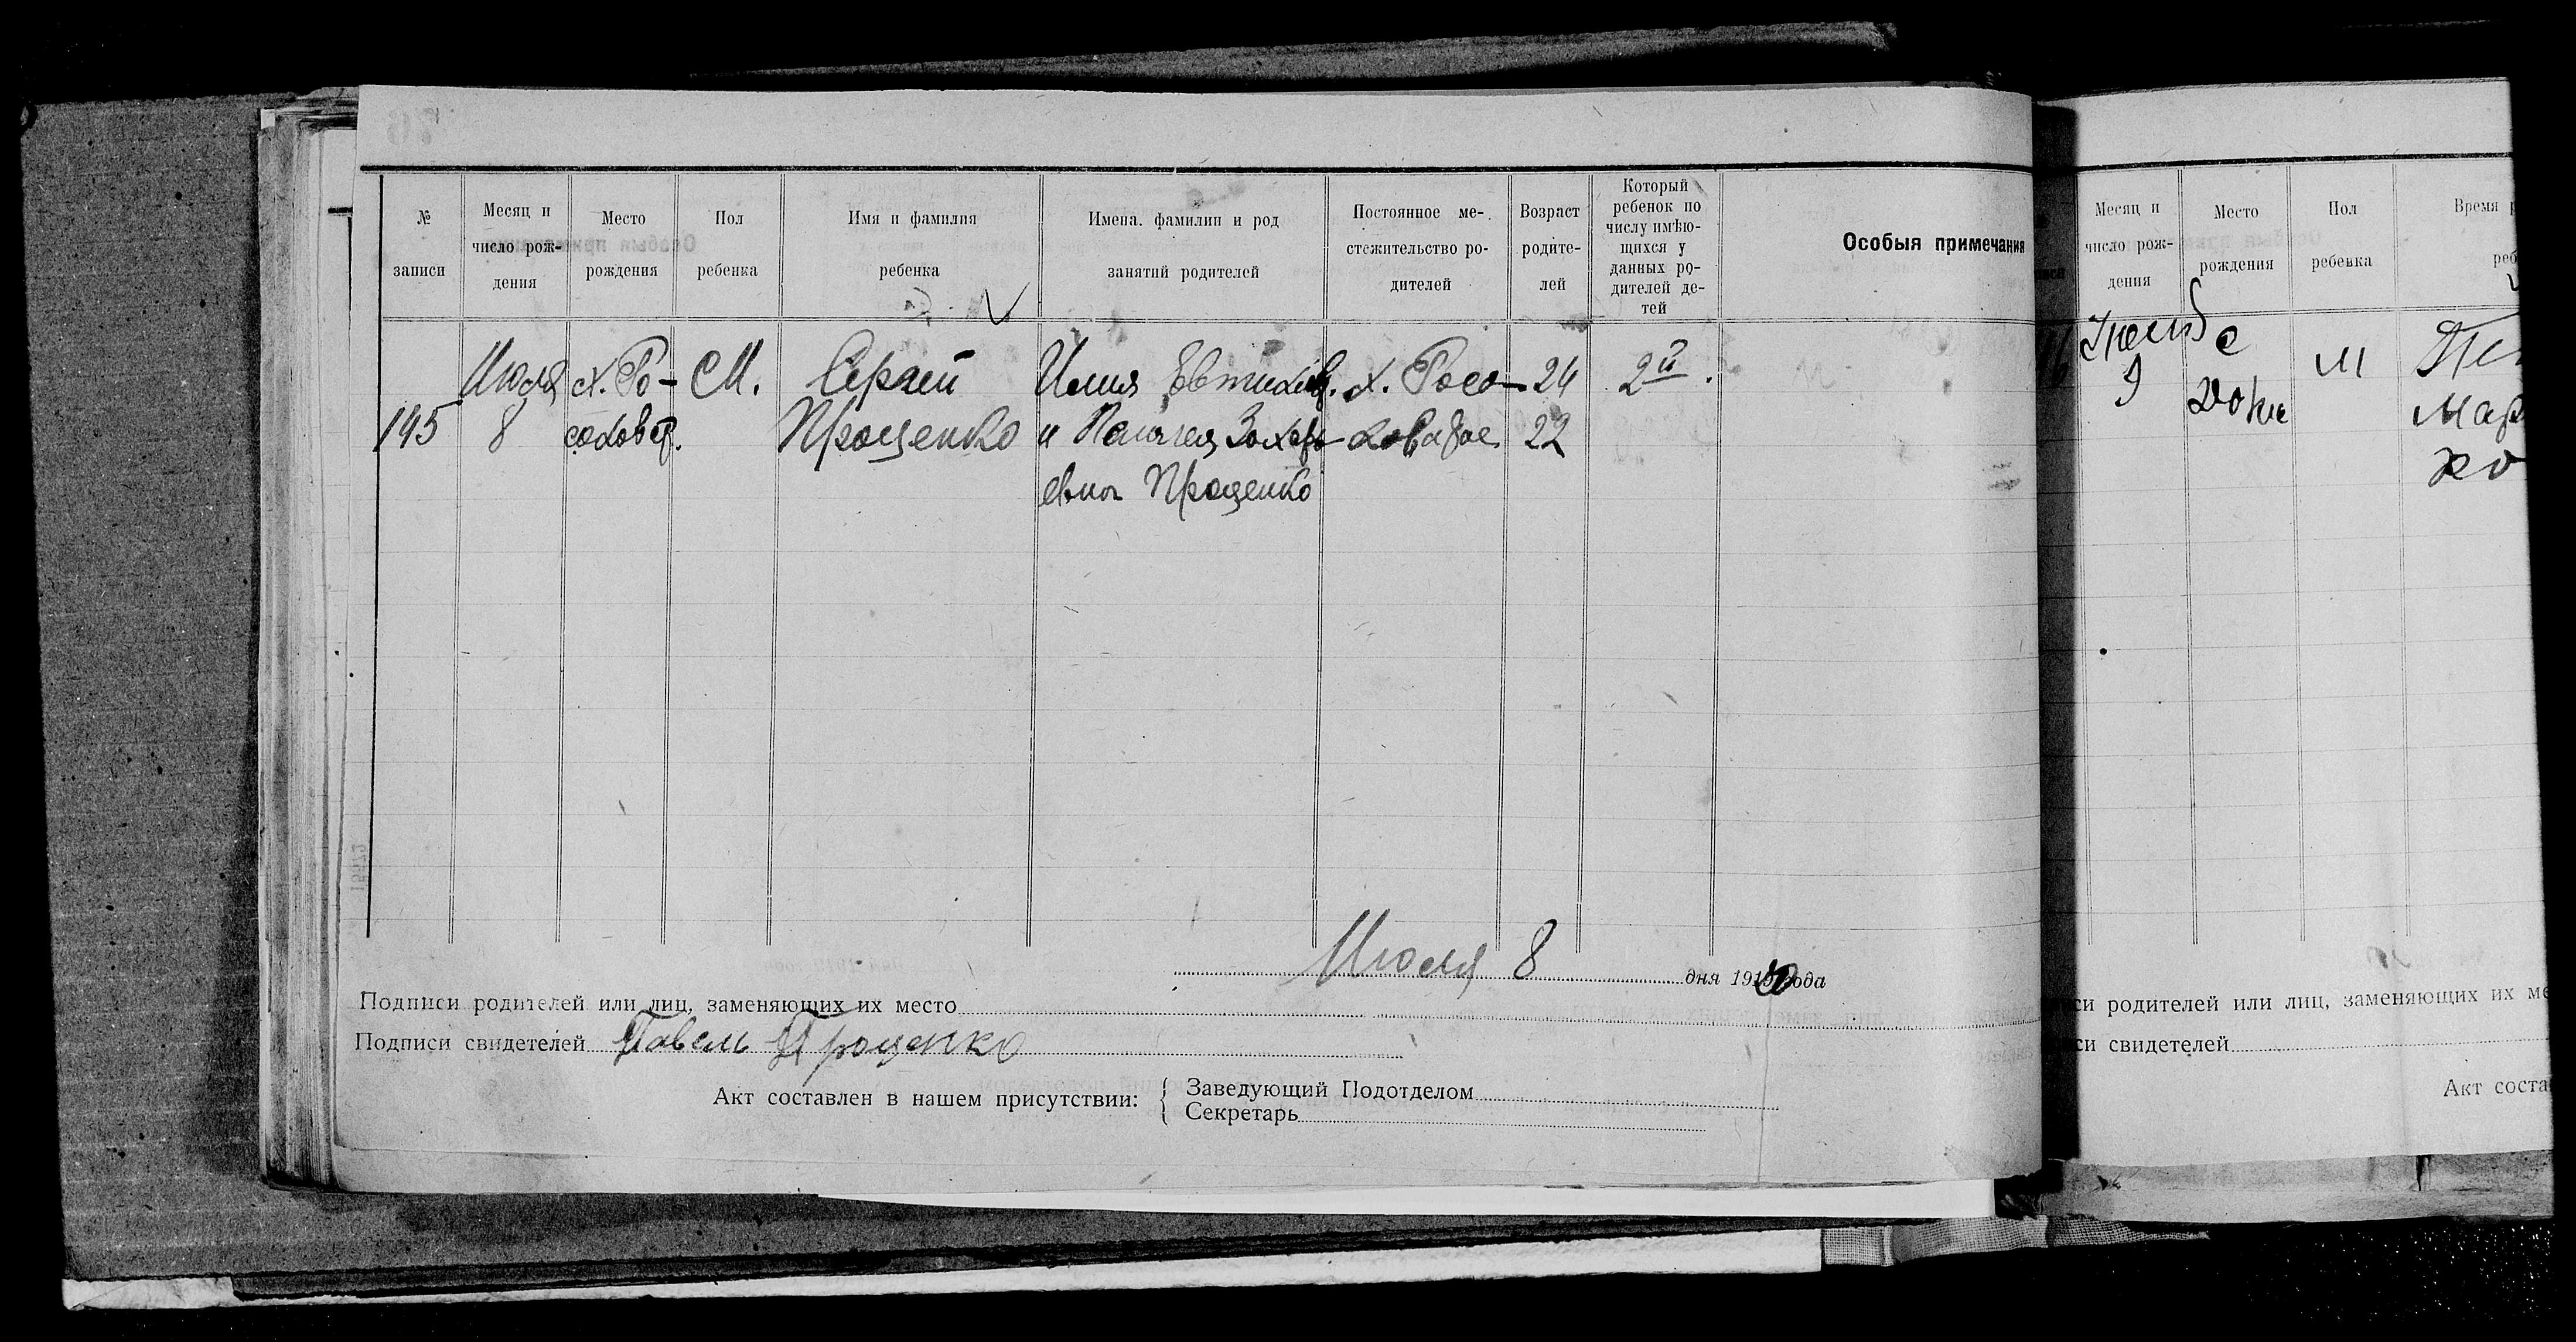 № записи
Месяц и число рождения
Место рождения
Пол ребенка
Имя и фамилия ребенка
Имена, фамилии и род занятий родителей
Постоянное местожительство родителей
Возраст родителей
Который ребенок по числу имѣющихся у данных родителей детей
Особыя примечания
Июля х. Ро- М. Сергей Илия Евтихиев. х. Росо- 24 2й.
145 8 соховат. Проценко и Пелагея Захарь- ховатое 22
евна Проценко
Июля 8 дня 1920 года
Подписи родителей или лиц, заменяющих их место
Подписи свидетелей Павел Проценко
Акт составлен в нашем присутствии: { Заведующий Подотделом
Секретарь
Месяц и число рождения
Место рождения
Пол ребенка
Время р
реб
9
М
Мар
ко
си родителей или лиц, заменяющих их ме
си свидетелей
Акт соста